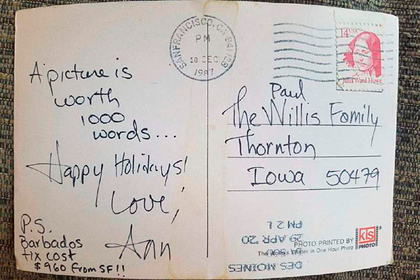 SAN FRANCISCO, CA 941
PM
18 DEC
1987
14
A picture is
worth
1000
words...
Happy Holidays!
Love,
Ann
P.S.
Barbados
tix cost
$960 from SF!!
Paul
The Willis Family
Thornton
Iowa 50479
PHOTO PRINTED BY
KIS
PHOTO
in One Hour Photo
DES MOINES
29 APR 20
PM 2 L